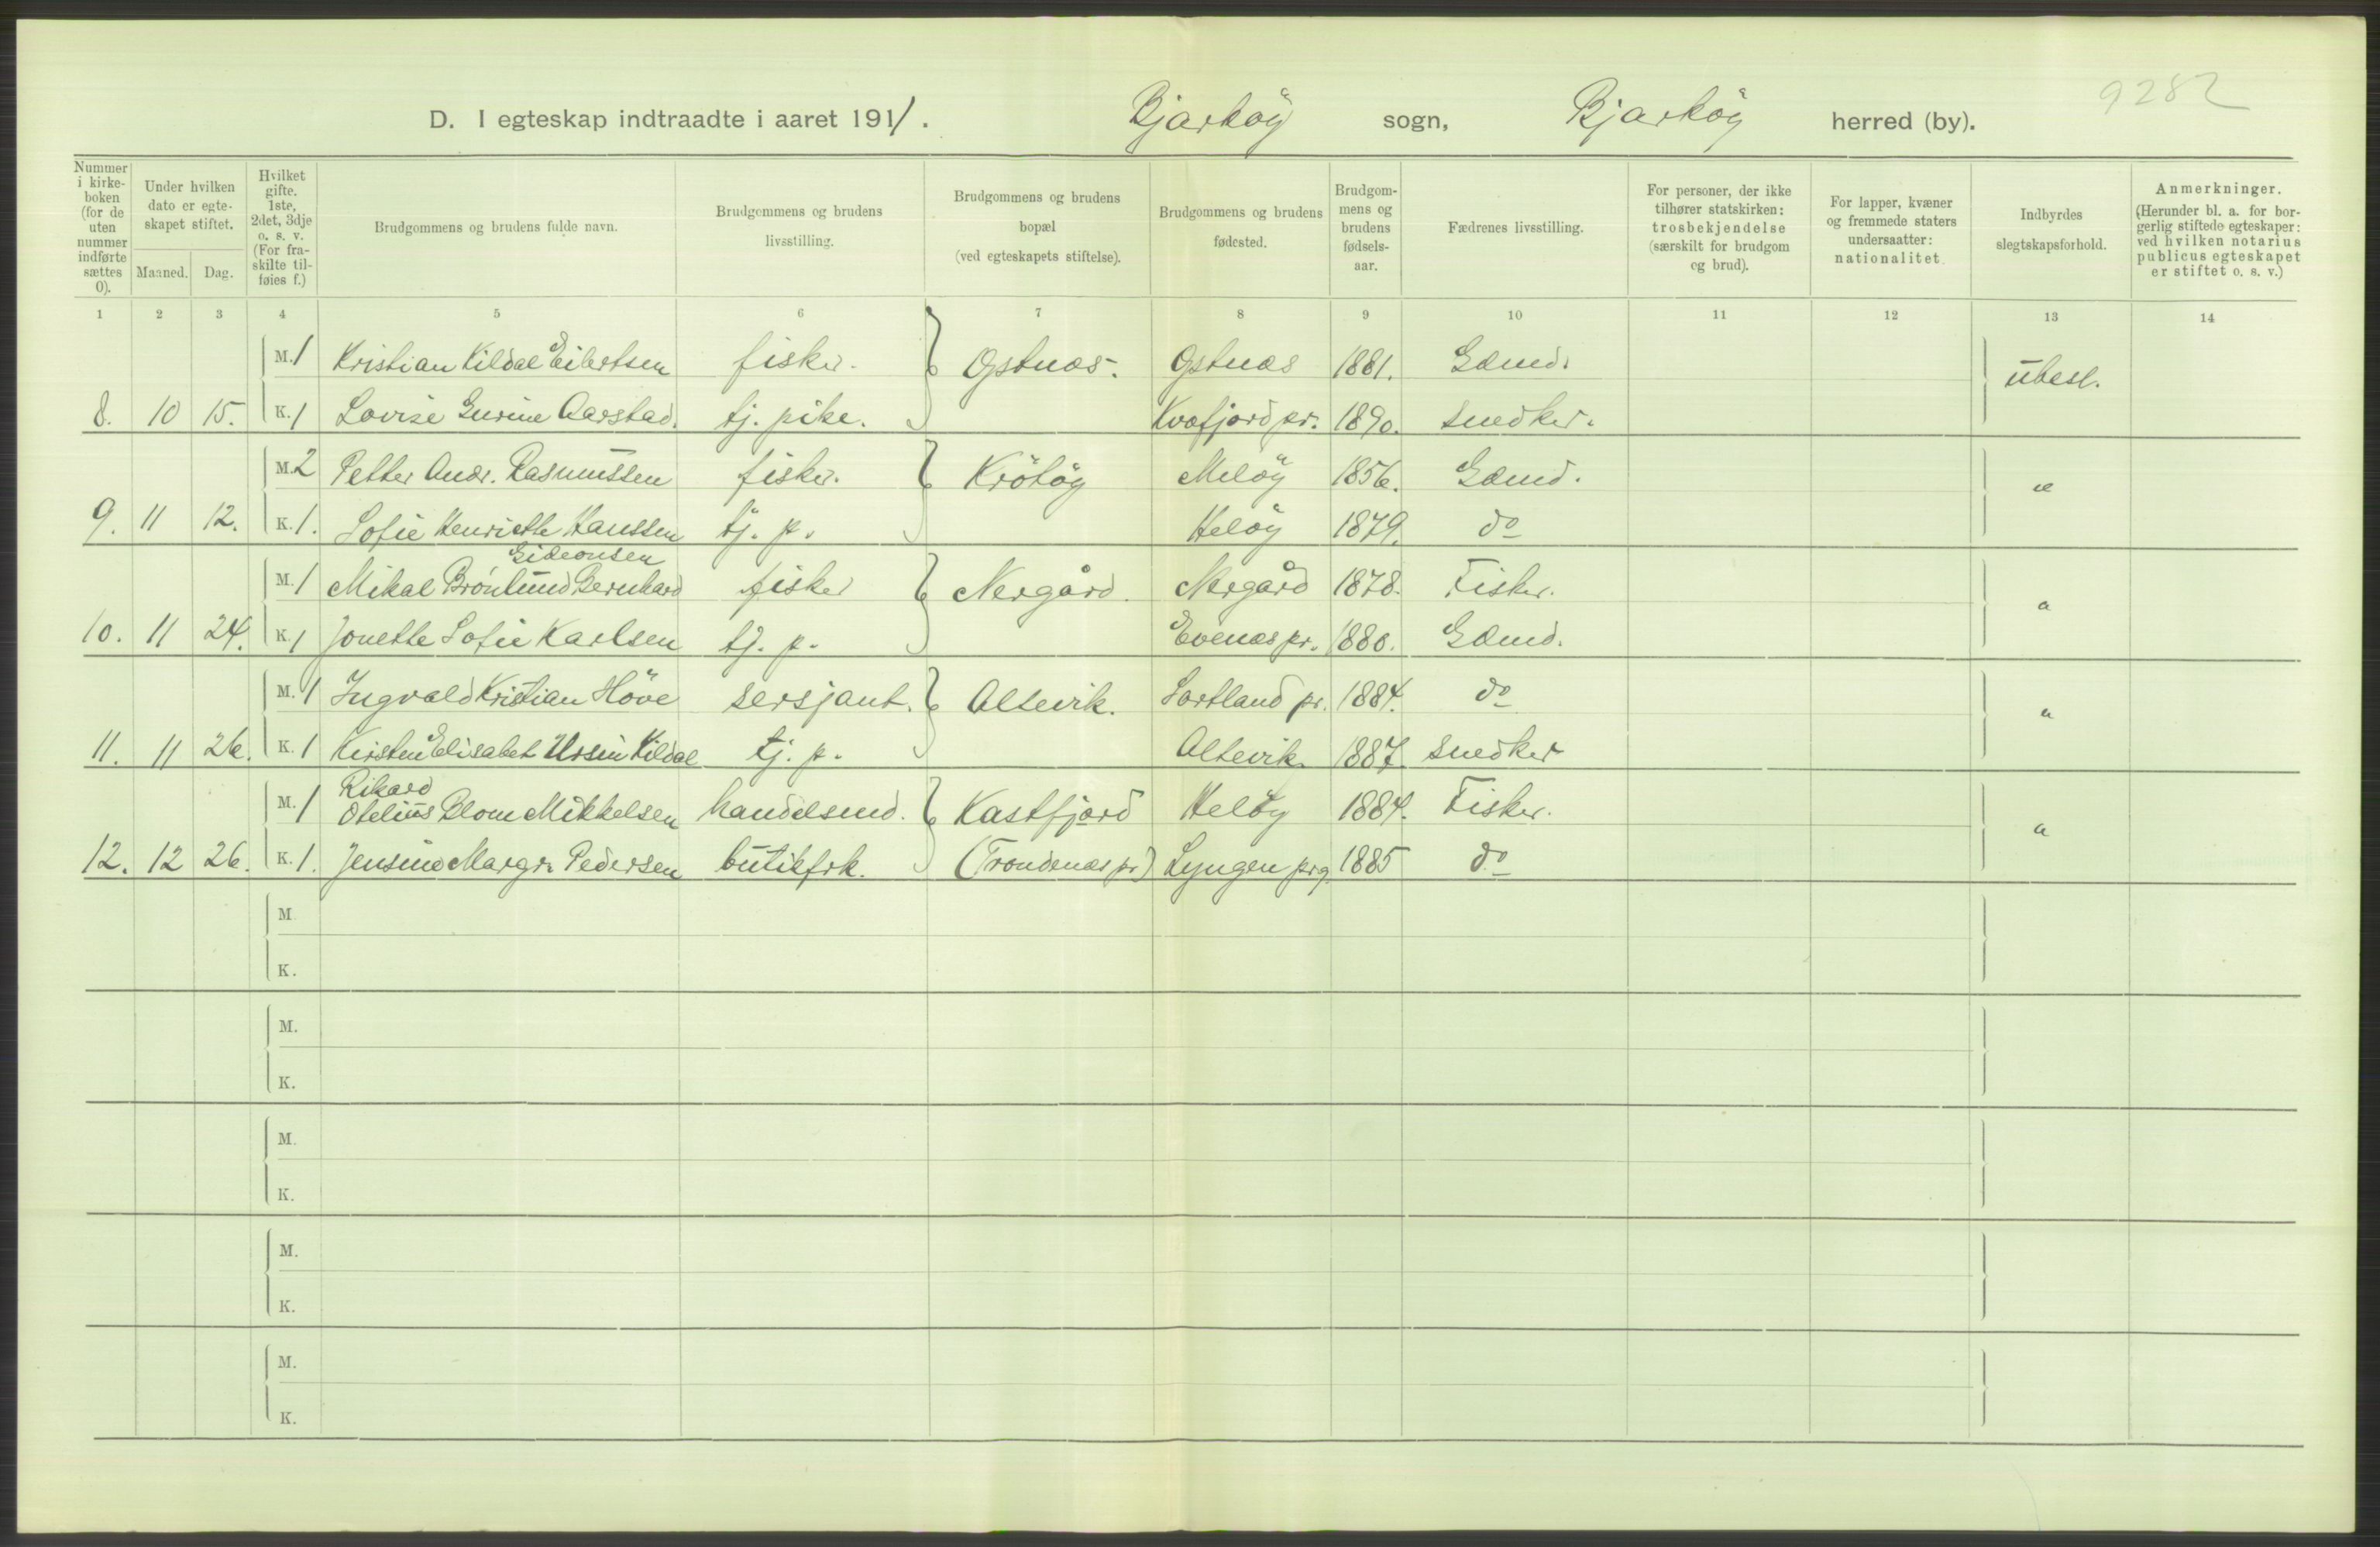 9282
D. I egteskap indtraadte i aaret 1911. Bjarköy sogn, Bjarköy herred (by).
Nummer i kirke-boken (for de uten nummer indførte sættes 0). Under hvilken dato er egte-skapet stiftet. Maaned. Dag. Hvilket gifte. 1ste, 2det, 3dje o. s. v. (For fra-skilte til-føies f.) Brudgommens og brudens fulde navn. Brudgommens og brudens livsstilling. Brudgommens og brudens bopæl (ved egteskapets stiftelse). Brudgommens og brudens fødested. Brudgom-mens og brudens fødsels-aar. Fædrenes livsstilling. For personer, der ikke tilhører statskirken: trosbekjendelse (særskilt for brudgom og brud). For lapper, kvæner og fremmede staters undersaatter: nationalitet Indbyrdes slegtskapsforhold. Anmerkninger. (Herunder bl. a. for bor-gerlig stiftede egteskaper: ved hvilken notarius publicus egteskapet er stiftet o. s. v.)
1 2 3 4 5 6 7 8 9 10 11 12 13 14
M. 1 Kristian Kildal Eilertsen fisker. Gstnæs. Gstnæs 1881. Gdmd. ubesl.
8. 10 15. K. 1 Lovise Gurine Aarstad. tj. pike. Kvæfjord pr. 1890. snedker.
M. 2 Petter Andr. Rasmussen fisker. Krötöy Melöy 1856. Gdmd. "
9. 11 12. K. 1. Sofie Henriette Hanssen tj. p. Helöy 1879. do
Gideonsen
M. 1 Mikal Brönlund Bernhard fisker Nergård. Nergård 1878. Fisker. "
10. 11 24. K. 1 Jonette Sofie Karlsen tj. p. Evenæs pr. 1880. Gdmd.
M. 1 Ingvald Kristian Höve sersjant. Altevik. Sortland pr. 1884. do "
11. 11 26. K. 1 Kirsten Elisabet Ursin Kildal tj. p. Altevik 1887. snedker
Rikard
M. 1 Otelius Blom Mikkelsen handelsmd. Kastfjord Helöy 1884. Fisker. "
12. 12 26. K. 1. Jensine Margr. Pedersen butikfrk. (Trondenæs pr) Lyngen prg. 1885 do
M.
K.
M.
K.
M.
K.
M.
K.
M.
K.